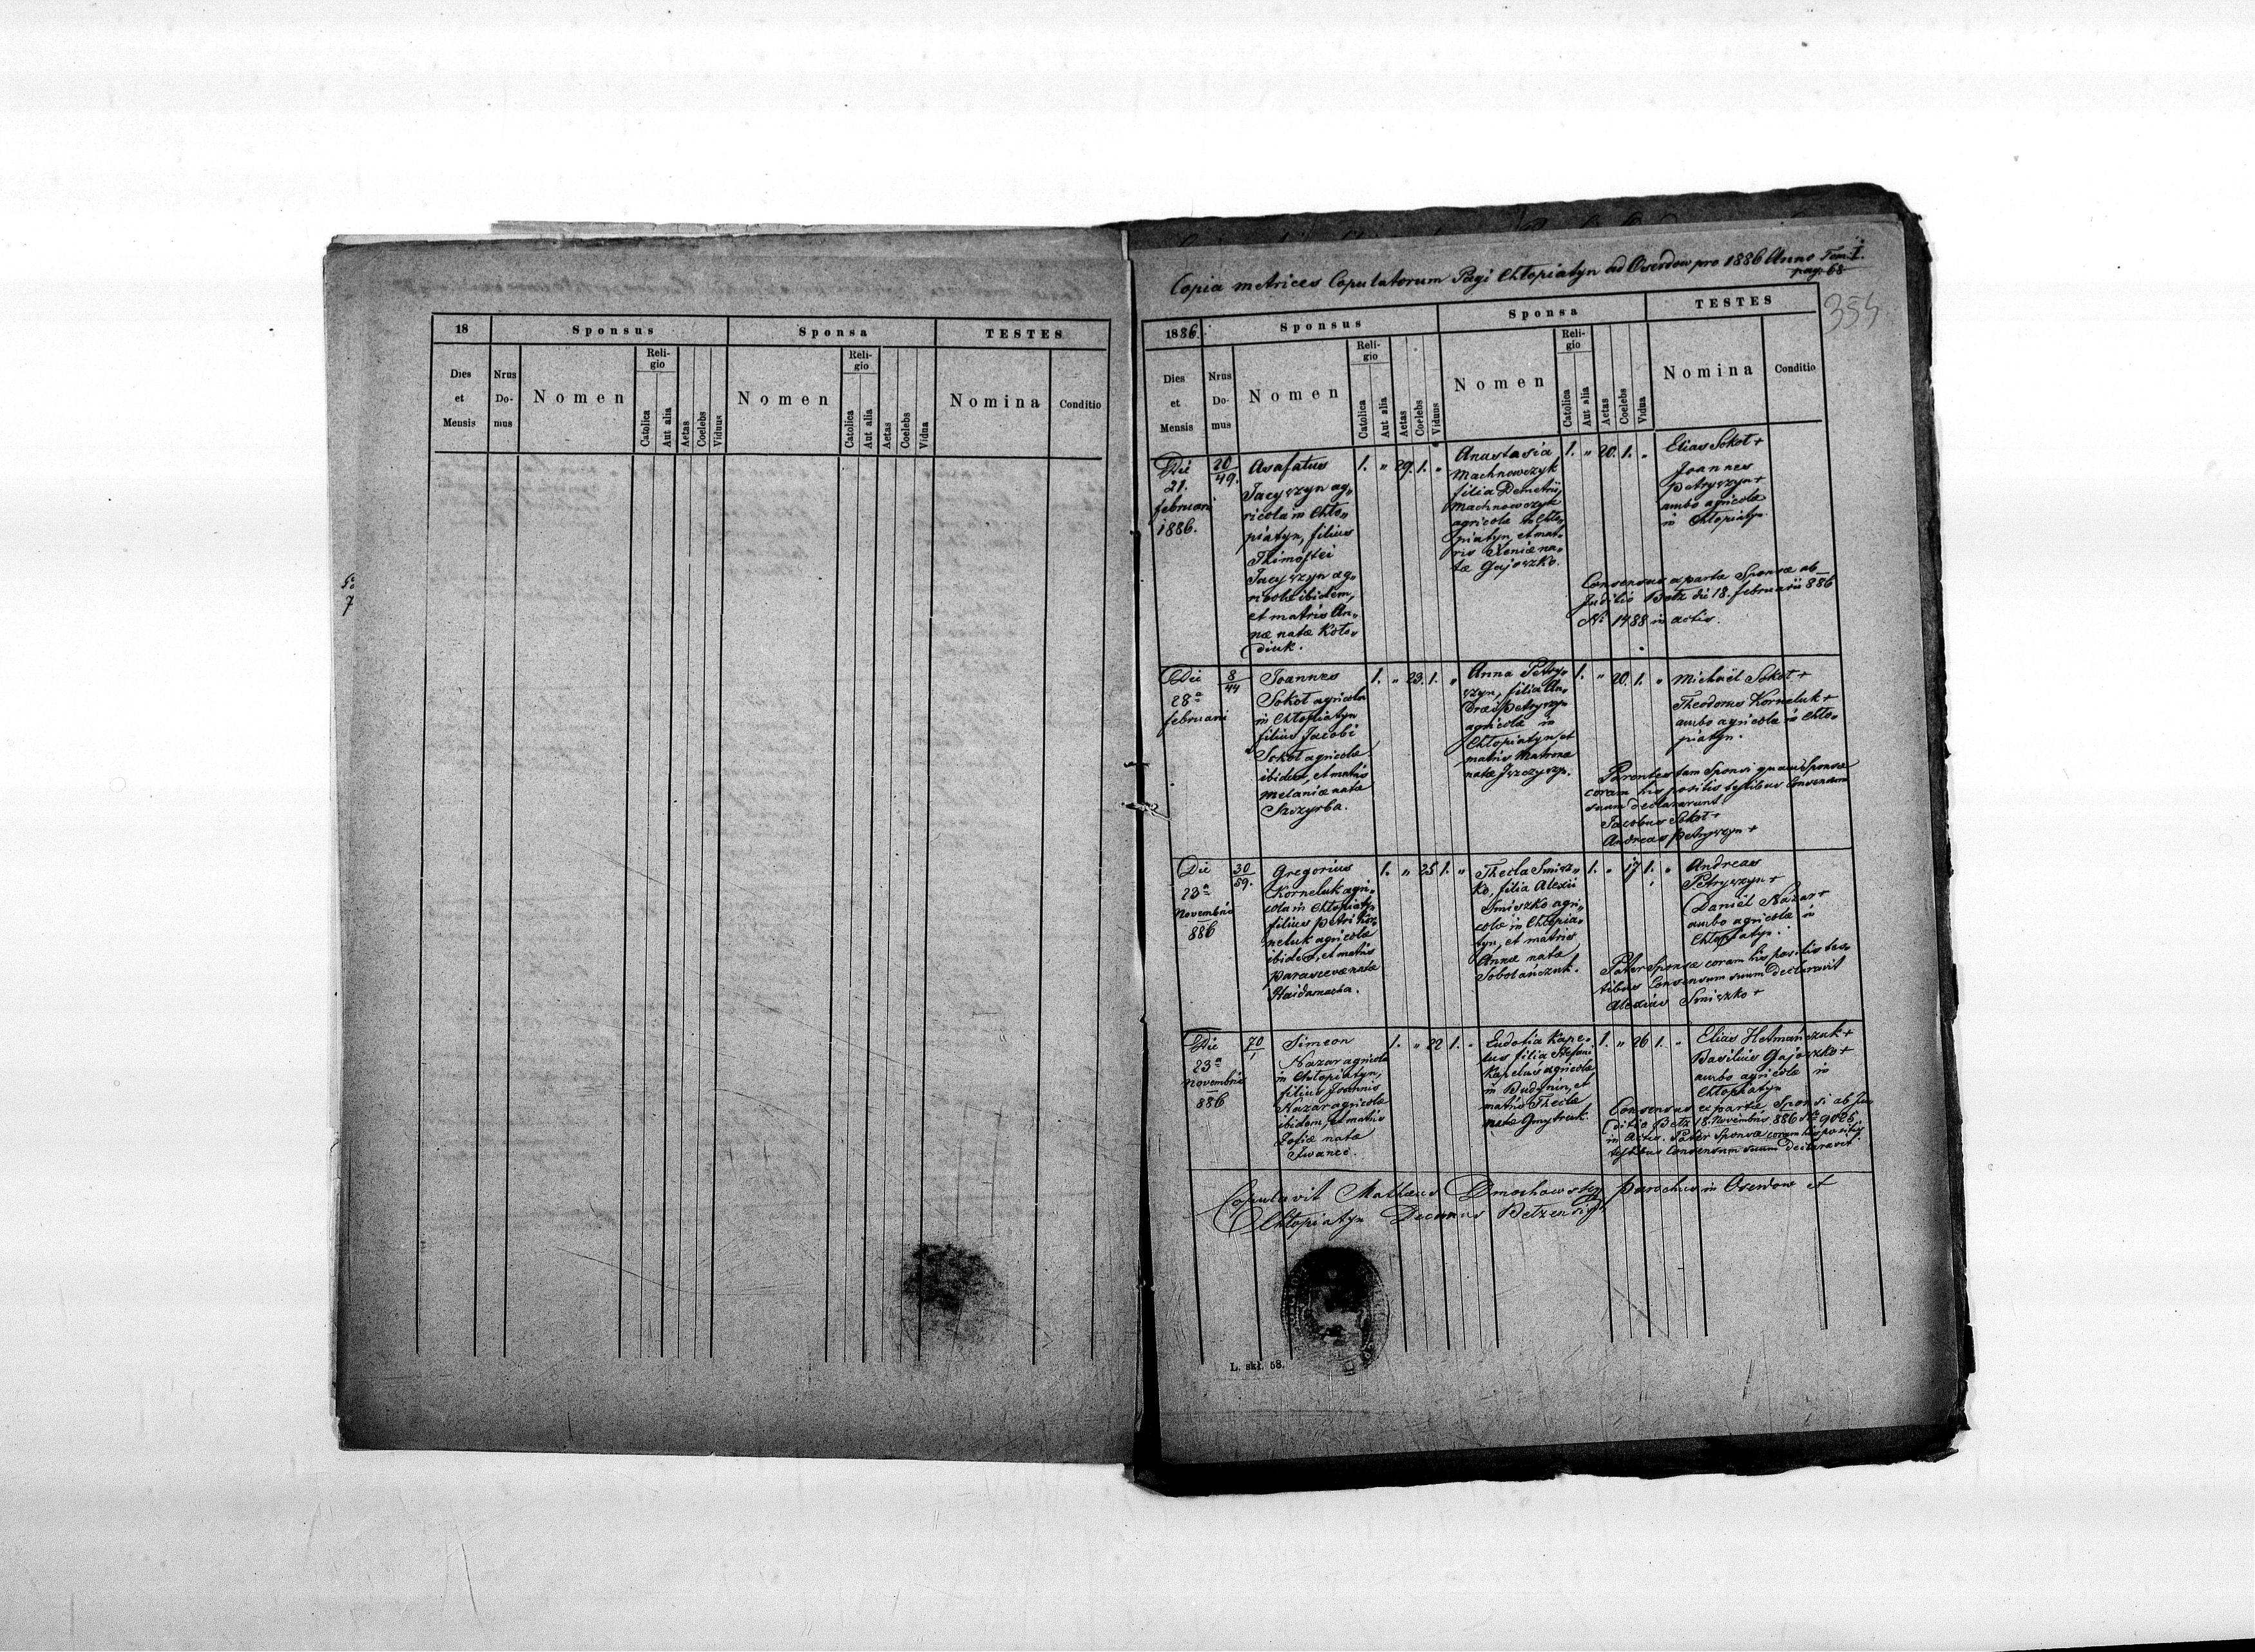 18
Sponsus
Sponsa
TESTES
Dies et Mensis
Nrus Domus
Nomen
Religio
Catolica
Aut alia
Aetas
Coelebs
Viduus
Nomen
Religio
Catolica
Aut alia
Aetas
Coelebs
Vidua
Nomina
Conditio
Copia metrices Copulatorum Pagi Chłopiatyn ad Oserdow pro 1886 Anno Tom: I.
pag. 68
354
1886.
Sponsus
Sponsa
TESTES
Dies et Mensis
Nrus Domus
Nomen
Religio
Catolica
Aut alia
Aetas
Coelebs
Viduus
Nomen
Religio
Catolica
Aut alia
Aetas
Coelebs
Vidua
Nomina
Conditio
Die
21.
februari
1886.
20/49.
Asafatus
Jacyszyn ag„
ricola in Chło„
piatyn, filius
Thimoftei
Jacyszyn ag„
ricolæ ibidem,
et matris An„
næ natæ Koło„
diuk.
1. „ 29. 1. „
Anastasia
Machnowczyk
filia Demetrii
Machnowczyk
agricolæ in Chło„
piatyn, et mat„
ris Xeniæ na„
tæ Gajoszko.
1. „ 20. 1. „
Elias Sokoł +
Joannes
Petryszyn +
ambo agricolæ
in Chłopiatyn.
Consensus a parte Sponsæ ab
Juditio Bełz die 18. februarii 886
No 1488 in actis.
Die
28a
februari
8/44
Joannes
Sokoł agricola
in Chłopiatyn
filius Jacobi
Sokoł agricolæ
ibidem, et matris
Melaniæ natæ
Szczyrba.
1. „ 23. 1. „
Anna Petry„
szyn, filia An„
dreæ Petryszyn
agricolæ in
Chłopiatyn, et
matris Matronæ
natæ Iszczyszyn.
1. „ 20. 1. „
Michaël Sokoł +
Theodorus Korneluk +
ambo agricolæ in Chło„
piatyn.
Parentes tam Sponsi quam Sponsæ
coram his positis testibus Consensum
suum declararunt
Jacobus Sokoł +
Andreas Petryszyn +
Die
23a
Novembris
886
30/59.
Gregorius
Korneluk agri„
cola in Chłopiatyn
filius Petri Kor„
neluk agricolæ
ibidem, et matris
Parascevæ natæ
Haidamacha.
1. „ 25 1. „
Thecla Smisz„
ko, filia Alexii
Smiszko agri„
colæ in Chłopia„
tyn, et matris
Annæ natæ
Sobolańczuk.
1. „ 17 1. „
Andreas
Petryszyn +
Daniël Nazar +
ambo agricolæ in
Chłopiatyn.
Pater Sponsæ coram his positis tes„
tibus Consensum suum declaravit
Alexius Smiszko +
Die
23a
Novembris
886
70/1
Simeon
Nazar agricola
in Chłopiatyn,
filius Joannis
Nazar agricolæ
ibidem, et matris
Zofiæ natæ
Iwanec.
1. „ 22 1. „
Eudokia Kape„
lus filia Stefani
Kapelus agricolæ
in Budynin, et
matris Theclæ
natæ Gmytrouk.
1. „ 26 1. „
Elias Hetmańczuk +
Basilius Gajoszko +
ambo agricolæ in
Chłopiatyn
Consensus ex parte Sponsi ab Ju„
ditio Bełz 18. Novembris 886 No 9025
in actis. Pater Sponsæ coram his positis
testibus Consensum suum declaravit.
Copulavit Mathæus Dmochowsky Parochus in Oserdow et
Chłopiatyn Decanus Bełzensis
L. skł. 58.